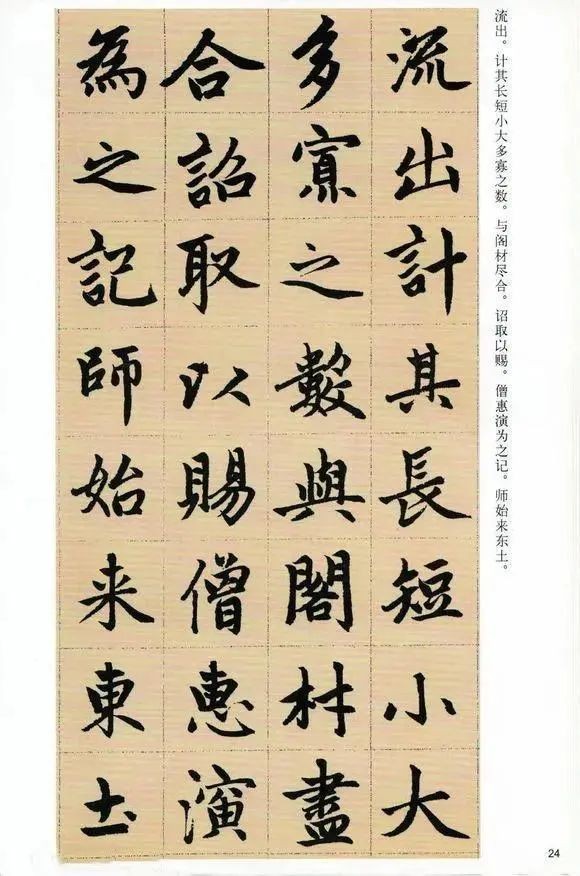 流出。计其长短小大多寡之数。与阁材尽合。诏取以赐。僧惠演为之记。师始来东土。
流出計其長短小大
多寡之數與閣材盡
合詔取以賜僧惠演
為之記師始来東土
24